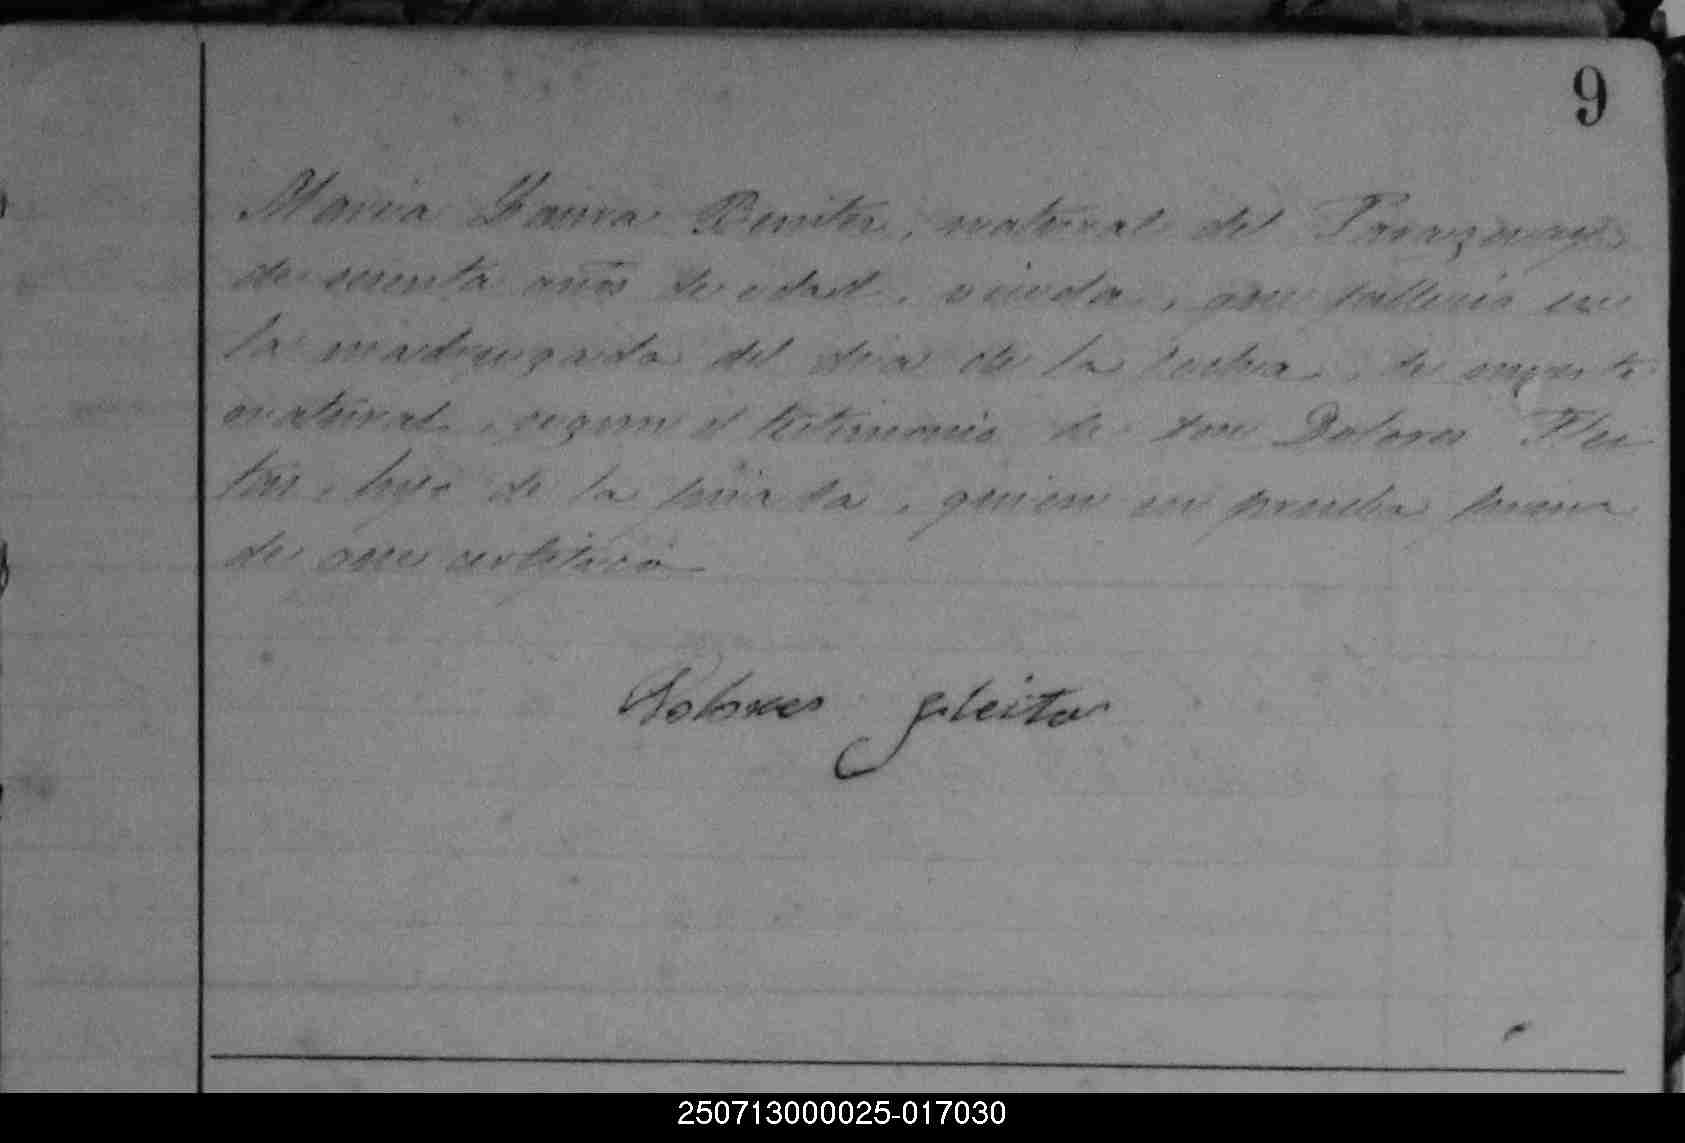 9
Maria Laura Benites, natural del Paraguay
de sesenta años de edad, viuda, que falleció en
la madrugada del dia de la fecha, de muerte
natural, segun el testimonio de don Dolores Flei
tas, hijo de la finada, quien en prueba firma
de que certifico
Dolores fleitas
250713000025-017030